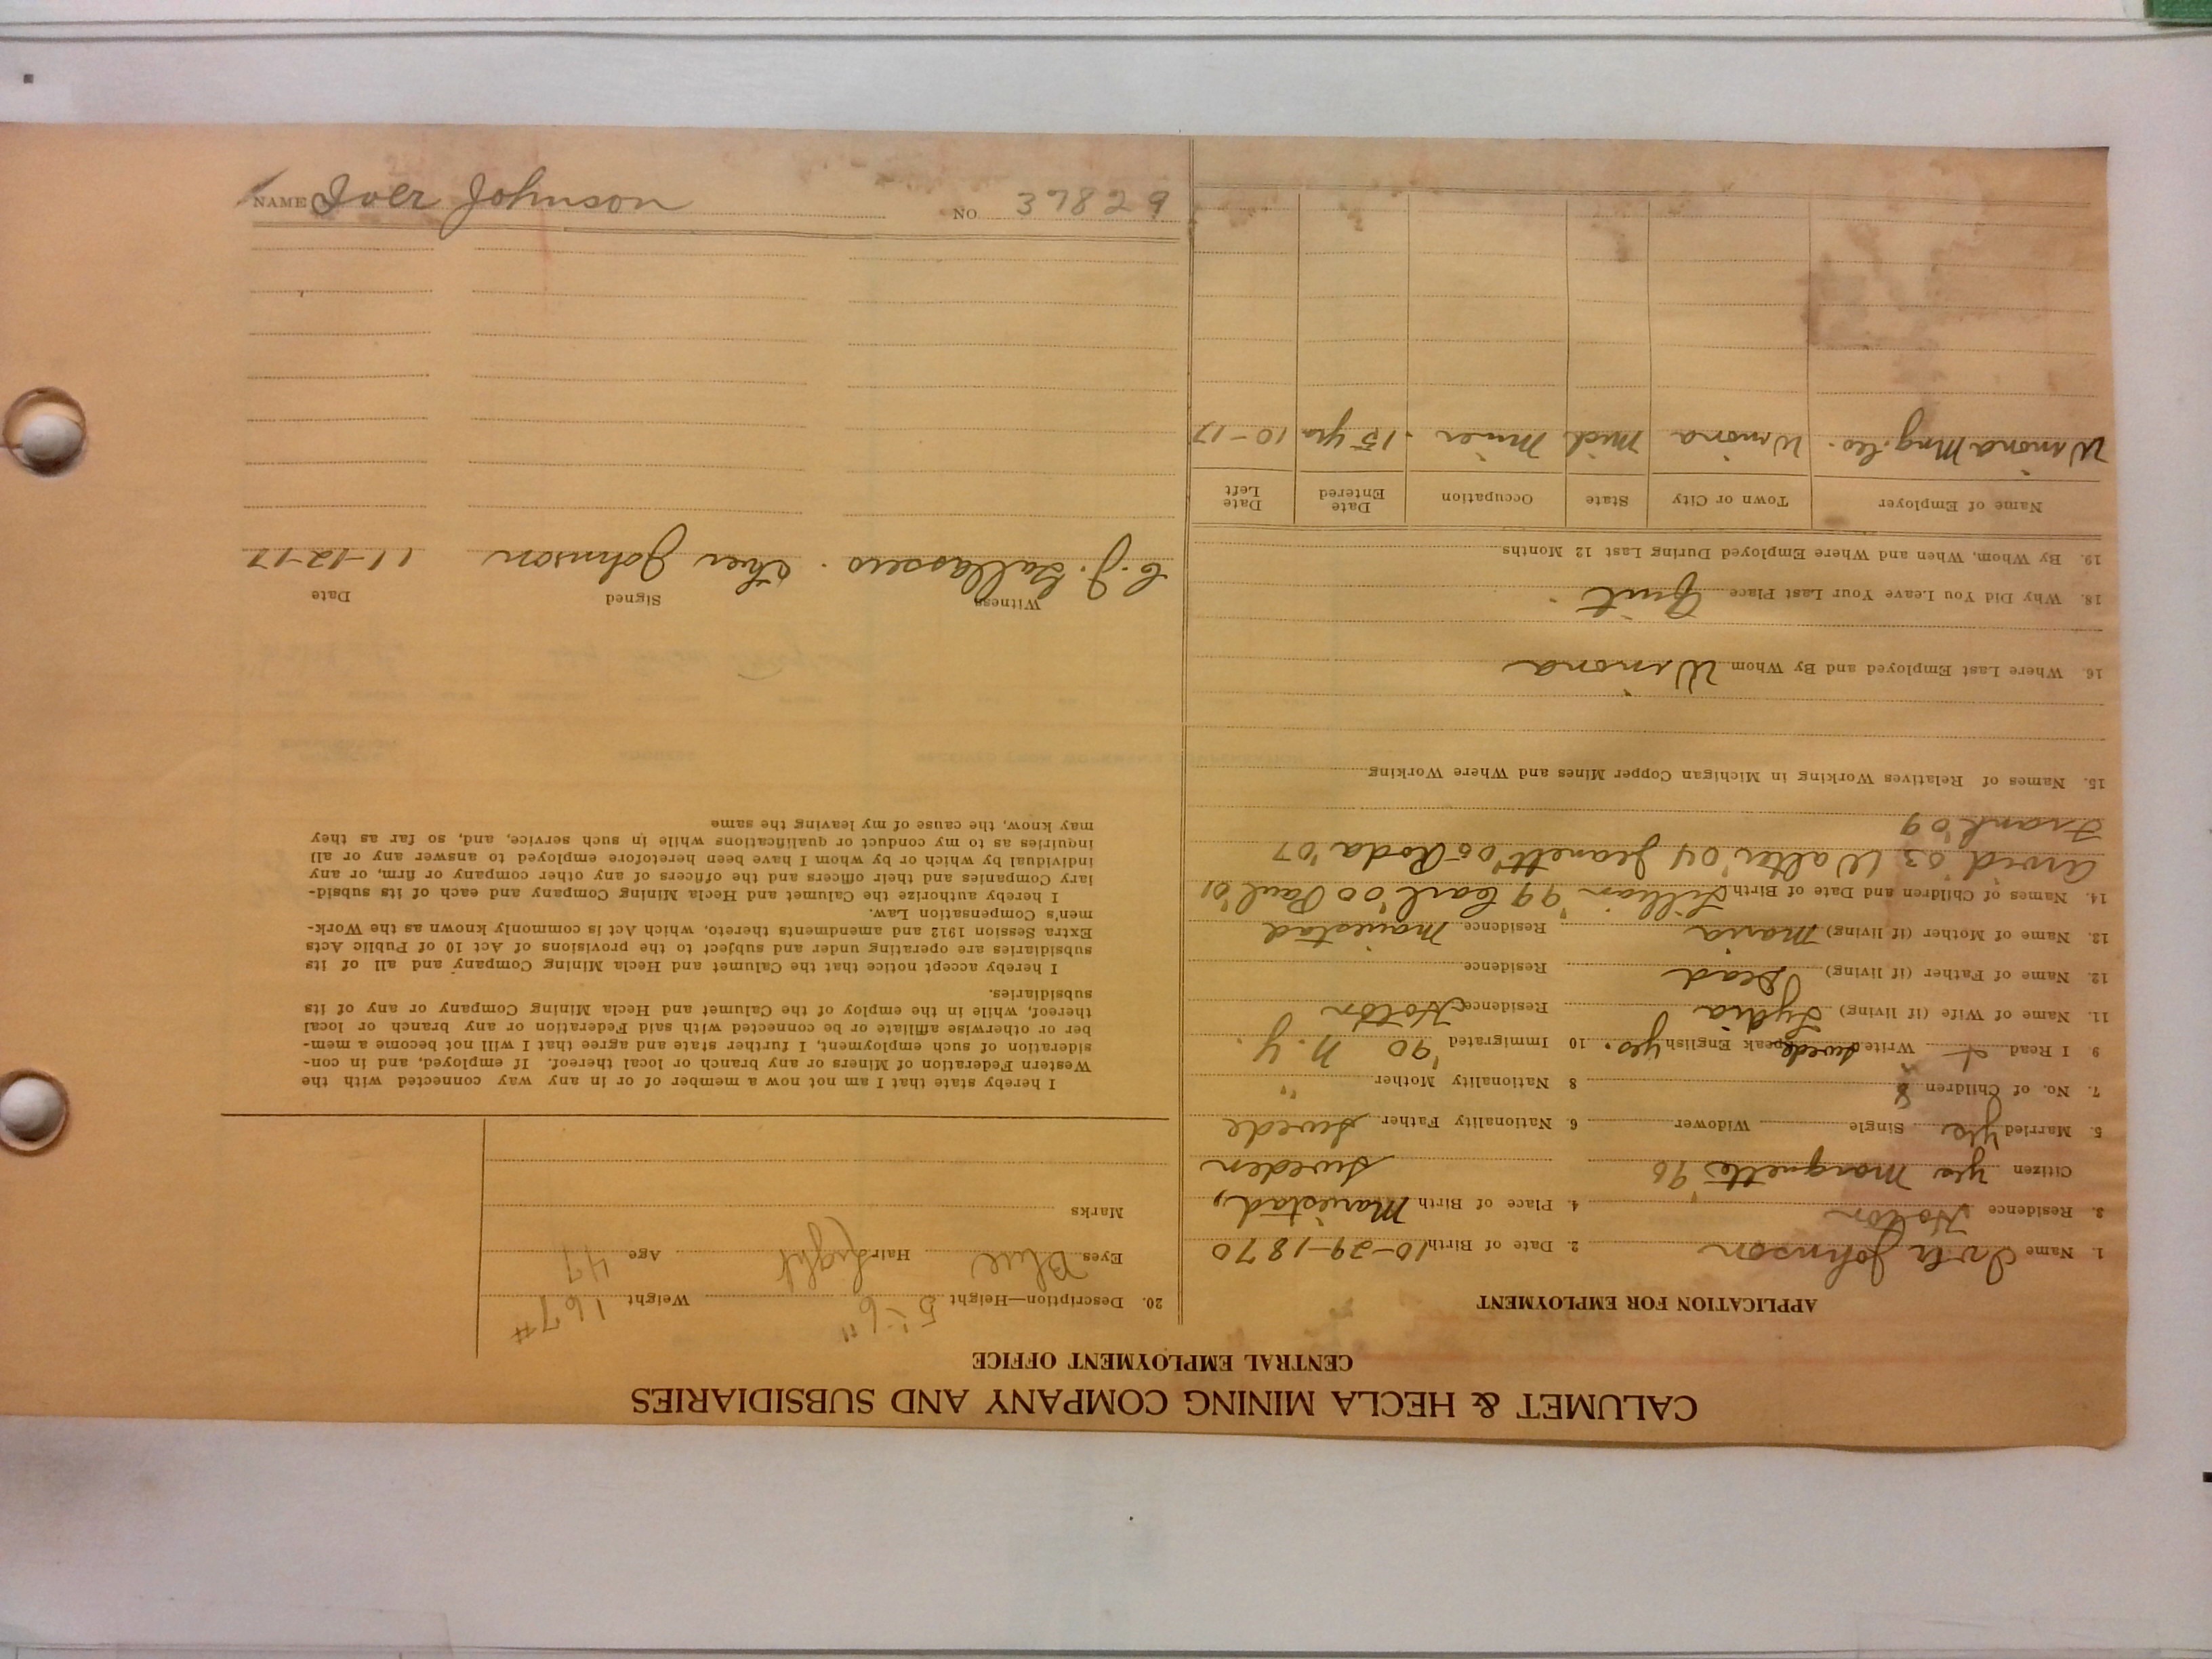 CALUMET & HECLA MINING COMPANY AND SUBSIDIARIES
CENTRAL EMPLOYMENT OFFICE
APPLICATION FOR EMPLOYMENT
1. Name Iver Johnson 2. Date of Birth 10-29-1870
3. Residence Holton 4. Place of Birth Mariestad,
Citizen yes Marquette '96 Sweden
5. Married yes Single Widower 6. Nationality Father Swede
7. No. of Children 8 8 Nationality Mother " "
9 I Read + Write Swede Speak English yes. 10 Immigrated '90 N.Y.
11. Name of Wife (if living) Lydia Residence Holton
12. Name of Father (if living) Dead Residence
13. Name of Mother (if living) Maria Residence Mariestad
14. Names of Children and Date of Birth Lillian '99 Carl '00 Paul '01
Arvid '03 Walter '04 Jeanett '05 Roda '07
Frank '09
15. Names of Relatives Working in Michigan Copper Mines and Where Working
16. Where Last Employed and By Whom Winona
18. Why Did You Leave Your Last Place Quit.
19. By Whom, When and Where Employed During Last 12 Months
Name of Employer Town or City State Occupation Date Entered Date Left
Winona Mng. Co. Winona Mich Miner. 15 yrs 10-17
20. Description—Height 5'-6" Weight 167#
Eyes Blue Hair Light Age 47
Marks
I hereby state that I am not now a member of or in any way connected with the
Western Federation of Miners or any branch or local thereof. If employed, and in con-
sideration of such employment, I further state and agree that I will not become a mem-
ber or otherwise affiliate or be connected with said Federation or any branch or local
thereof, while in the employ of the Calumet and Hecla Mining Company or any of its
subsidiaries.
I hereby accept notice that the Calumet and Hecla Mining Company and all of its
subsidiaries are operating under and subject to the provisions of Act 10 of Public Acts
Extra Session 1912 and amendments thereto, which Act is commonly known as the Work-
men's Compensation Law.
I hereby authorize the Calumet and Hecla Mining Company and each of its subsid-
iary Companies and their officers and the officers of any other company or firm, or any
individual by which or by whom I have been heretofore employed to answer any or all
inquiries as to my conduct or qualifications while in such service, and, so far as they
may know, the cause of my leaving the same
Witness Signed Date
Iver Johnson 11-12-17
NAME Iver Johnson NO 37829